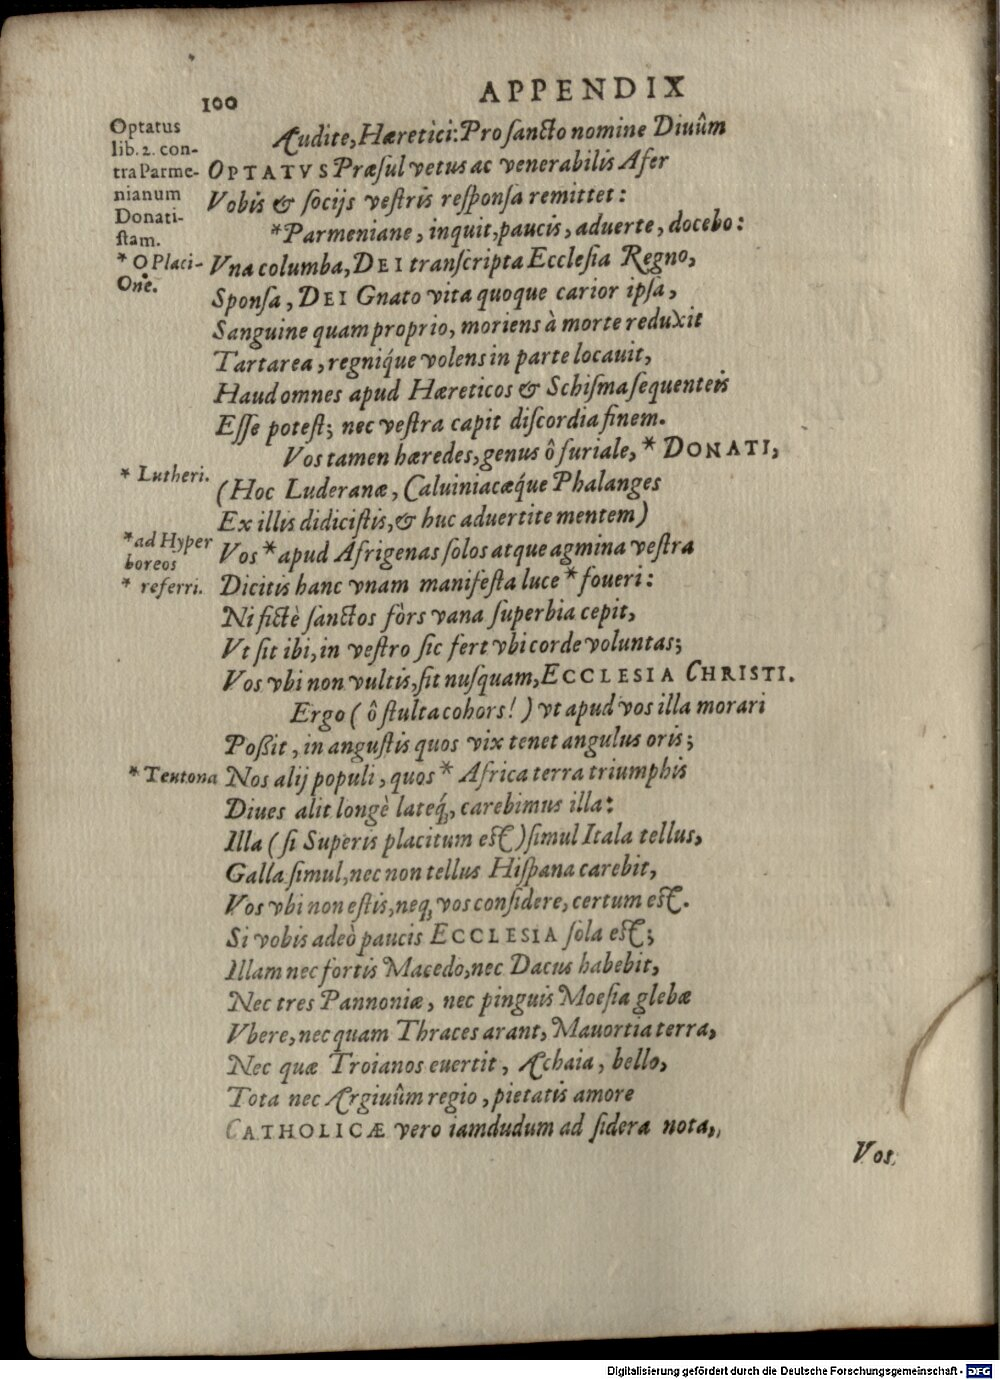 100 APPENDIX
Optatus
lib. 2. con-
tra Parme-
nianum
Donati-
stam.
* O Placi-
One.
Audite, Hæretici: Pro sancto nomine Diuûm
OPTATVS Præsul vetus ac venerabilis Afer
Vobis & socijs vestris responsa remittet:
*Parmeniane, inquit, paucis, aduerte, docebo:
Vna columba, DEI transcripta Ecclesia Regno,
Sponsa, DEI Gnato vita quoque carior ipsa,
Sanguine quam proprio, moriens à morte reduxit
Tartarea, regniq́ue volens in parte locauit,
Haud omnes apud Hæreticos & Schisma sequenteis
Esse potest; nec vestra capit discordia finem.
Vos tamen hæredes, genus ô furiale, * DONATI,
* Lutheri.
(Hoc Luderanæ, Caluiniacæq́ue Phalanges
Ex illis didicistis, & huc aduertite mentem)
*ad Hyper
boreos
Vos * apud Afrigenas solos atque agmina vestra
* referri.
Dicitis hanc vnam manifesta luce * foueri:
Ni fictè sanctos fòrs vana superbia cepit,
Vt sit ibi, in vestro sic fert vbi corde voluntas;
Vos vbi non vultis, sit nusquam, ECCLESIA CHRISTI.
Ergo (ô stulta cohors!) vt apud vos illa morari
Poßit, in angustis quos vix tenet angulus oris;
* Teutona
Nos alij populi, quos * Africa terra triumphis
Diues alit longè lateq́ꝫ, carebimus illa:
Illa (si Superis placitum est) simul Itala tellus,
Galla simul, nec non tellus Hispana carebit,
Vos vbi non estis, neqꝫ vos considere, certum est.
Si vobis adeò paucis ECCLESIA sola est;
Illam nec fortis Macedo, nec Dacus habebit,
Nec tres Pannoniæ, nec pinguis Moesia glebæ
Vbere, nec quam Thraces arant, Mauortia terra,
Nec quæ Troianos euertit, Achaia, bello,
Tota nec Argiuûm regio, pietatis amore
CATHOLICÆ vero iamdudum ad sidera nota,
Vos
Digitalisierung gefördert durch die Deutsche Forschungsgemeinschaft - DFG